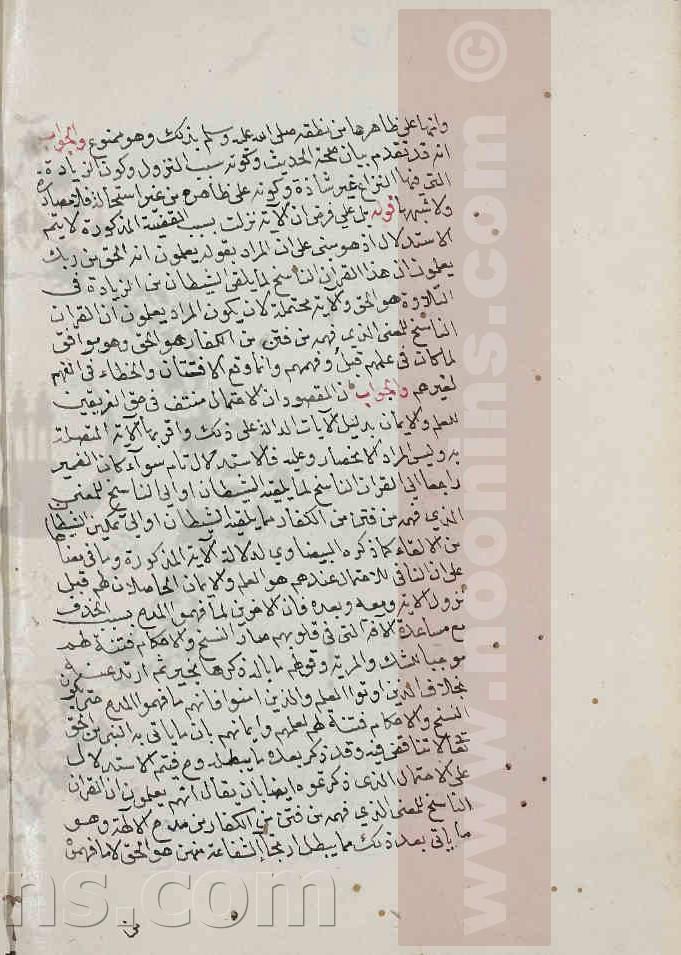 وانها على ظاهرها من نطقه صلى الله عليه وسلم بذلك وهو ممنوع والجواب
انه قد تقدم بيان صحة الحديث وكونه سبب النزول وكون الزيادة
التي فيها النزاع غير شاذة وكونه على ظاهره من غير استحالة فلا مصادرة
ولا شبهها قوله بل على فرض ان الآية نزلت بسبب القضية المذكورة لا يتم
الاستدلال اذ هو مبني على ان المراد بقوله يعلمون انه الحق من ربك
يعلمون ان هذا القران الناسخ لما يلقي الشيطان من الزيادة في
التلاوة هو الحق والاية محتملة لان يكون المراد يعلمون ان القران
الناسخ للمعنى الذي فهمه من فتن من الكفار هو الحق وهو موافق
لما كان في علمهم قبل وفهمهم وانما وقع الافتتان والخطاء في الفهم
لغيرهم والجواب ان المقصود ان الاحتمال منتف في حق الفريقين
للعلم والايمان بدليل الآيات الدالة على ذلك واقربها الآية المتصلة
به وليس المراد الانحصار وعليه فالاستدلال تام سوآء كان الضمير
راجعا الى القران الناسخ لما يلقيه الشيطان او الى الناسخ للمعنى
الذي فهمه من فتن من الكفار مما يلقيه الشيطان او الى تمكين الشيطان
من الالقاء كما ذكره البيضاوي لدلالة الآية المذكورة وما في معناها
على ان النافي للاحتمال عندهم هو العلم والايمان الحاصلان لهم قبل
نزول الآية ومعه وبعده فان الاخرين لما فهموا المدح بسبب الحذف
مع مساعدة الآفة التي في قلوبهم صار النسخ والاحكام فتنة لهم
موجبا للشك والمرية وقولهم ما باله ذكرها بخير ثم ارتد عنه
بخلاف الذين اوتوا العلم والذين امنوا فانهم ما فهموا المدح حتى يكون
النسخ والاحكام فتنة لهم لعلمهم وايمانهم بان ما ياتي به النبي من الحق
تعالى لا تناقض فيه وقد ذكر بعده ما يبطله وح فيتم الاستدلال
على الاحتمال الذي ذكرتموه ايضا بان يقال انهم يعلمون ان القران
الناسخ للمعنى الذي فهمه من فتن من الكفار من مدح الآلهة وهو
ما ياتي بعد ذلك مما يبطل ارتجآ الشفاعة منهن هو الحق لا ما فهموه
من
www.noonins.com ©
ns.com